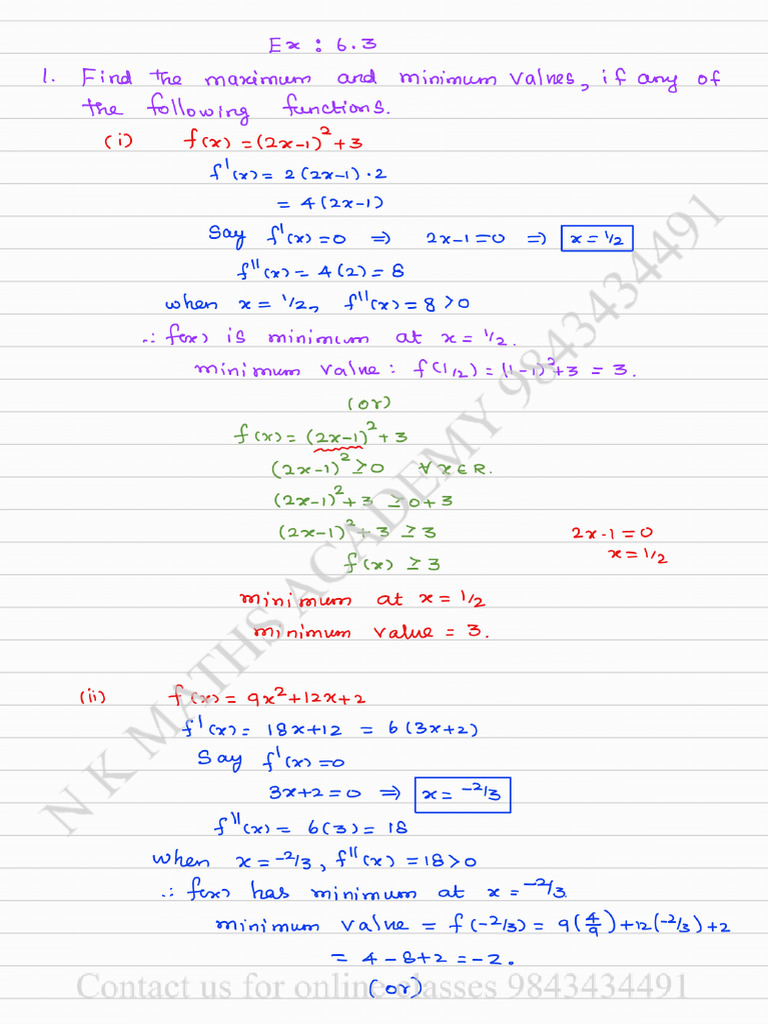 Ex : 6.3
1. Find the maximum and minimum values, if any of
the following functions.
(i) f(x) = (2x-1)² + 3
f'(x) = 2(2x-1)·2
= 4(2x-1)
Say f'(x) = 0 ⇒ 2x-1 = 0 ⇒ x = 1/2
f''(x) = 4(2) = 8
when x = 1/2, f''(x) = 8 > 0
∴ f(x) is minimum at x = 1/2.
minimum value: f(1/2) = (1-1)² + 3 = 3.
(or)
f(x) = (2x-1)² + 3
(2x-1)² ≥ 0 ∀ x ∈ R.
(2x-1)² + 3 ≥ 0+3
(2x-1)² + 3 ≥ 3 2x-1 = 0
f(x) ≥ 3 x = 1/2
minimum at x = 1/2
minimum value = 3.
(ii) f(x) = 9x² + 12x + 2
f'(x) = 18x+12 = 6(3x+2)
Say f'(x) = 0
3x+2 = 0 ⇒ x = -2/3
f''(x) = 6(3) = 18
when x = -2/3, f''(x) = 18 > 0
∴ f(x) has minimum at x = -2/3.
minimum value = f(-2/3) = 9(4/9) + 12(-2/3) + 2
= 4 - 8 + 2 = -2.
(or)
N K MATHS ACADEMY 9843434491
Contact us for online classes 9843434491